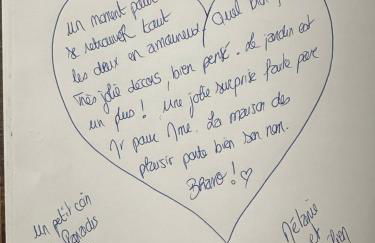 un moment pour
se retrouver tout
les deux en amoureux! Quel bon
très jolie décors, bien pensé. Le jardin est
un plus! Une jolie surprise faite par
Mr pour Mme. La maison des
plaisir porte bien son nom.
Bravo! ♡
un petit coin
Paradis
Mélanie
et